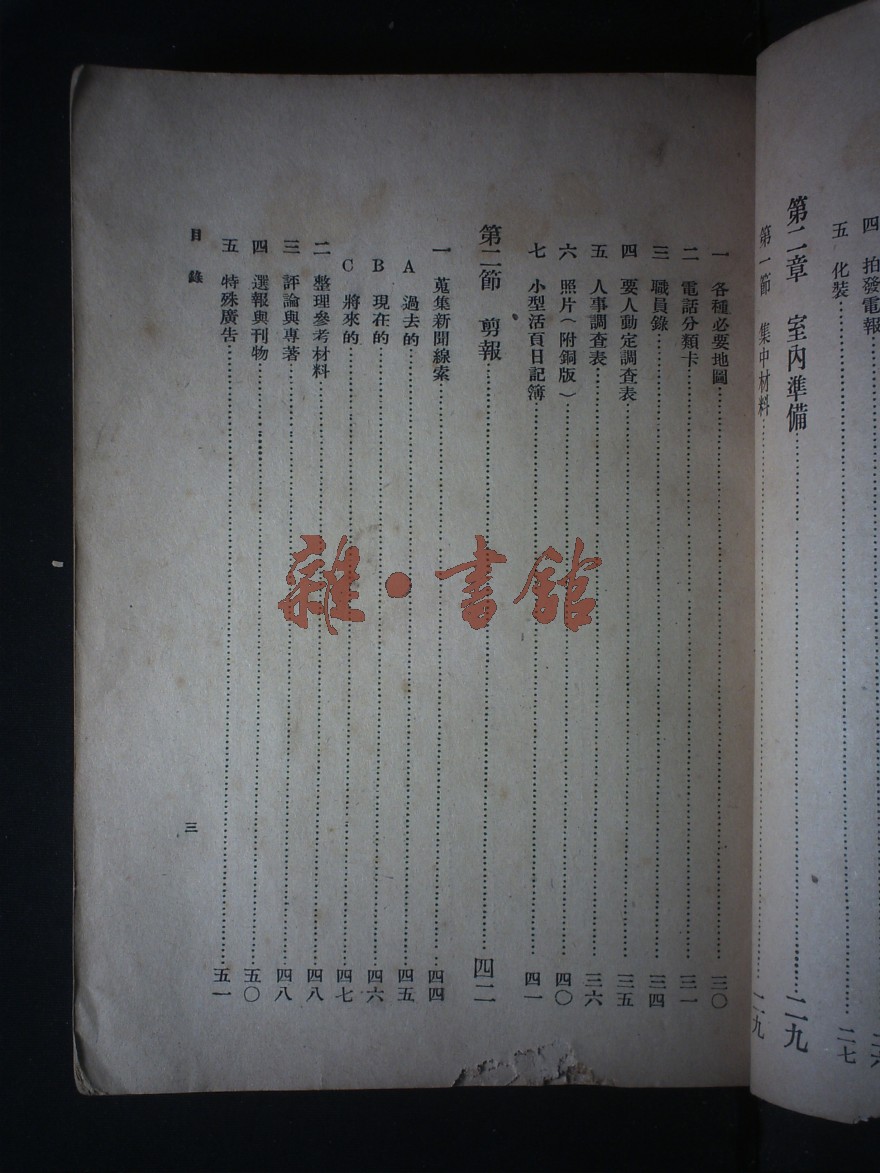 四 拍發電報……二六
五 化裝……二七
第二章 室內準備……二九
第一節 集中材料……二九
一 各種必要地圖……三〇
二 電話分類卡……三一
三 職員錄……三四
四 要人動定調查表……三五
五 人事調查表……三六
六 照片(附銅版)……四〇
七 小型活頁日記簿……四一
第二節 剪報……四二
一 蒐集新聞線索……四四
A 過去的……四五
B 現在的……四六
C 將來的……四七
二 整理參考材料……四八
三 評論與專著……四八
四 選報與刊物……五〇
五 特殊廣告……五一
目錄
三
雜·書館